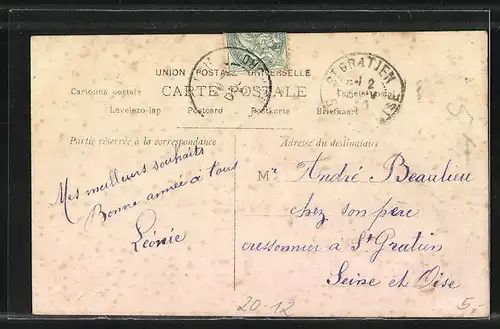 UNION POSTALE UNIVERSELLE
CARTE POSTALE
Cartolina postale
Levelezo-lap Postcard Postkarte Briefkaart
Partie réservée à la correspondance
Adresse du destinataire
ST GRATIEN
Mes meilleurs souhaits
Bonne année à tous
Léonie
Mr André Beaulieu
chez son père
cressonnier à St Gratien
Seine et Oise
20-12
5.-
5